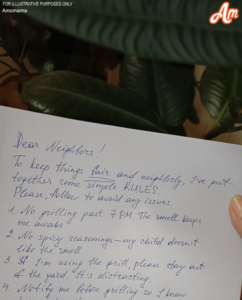 FOR ILLUSTRATIVE PURPOSES ONLY
Amomama
Am
Dear Neighbors!
To keep things fair and neighborly, I've put
together some simple RULES.
Please, follow to avoid any issues.
1. No grilling past 7 PM. The smell keeps
me awake.
2. No spicy seasonings – my child doesn't
like the smell.
3. If I'm using the grill, please stay out
of the yard. It's distracting.
4. Notify me before grilling so I know